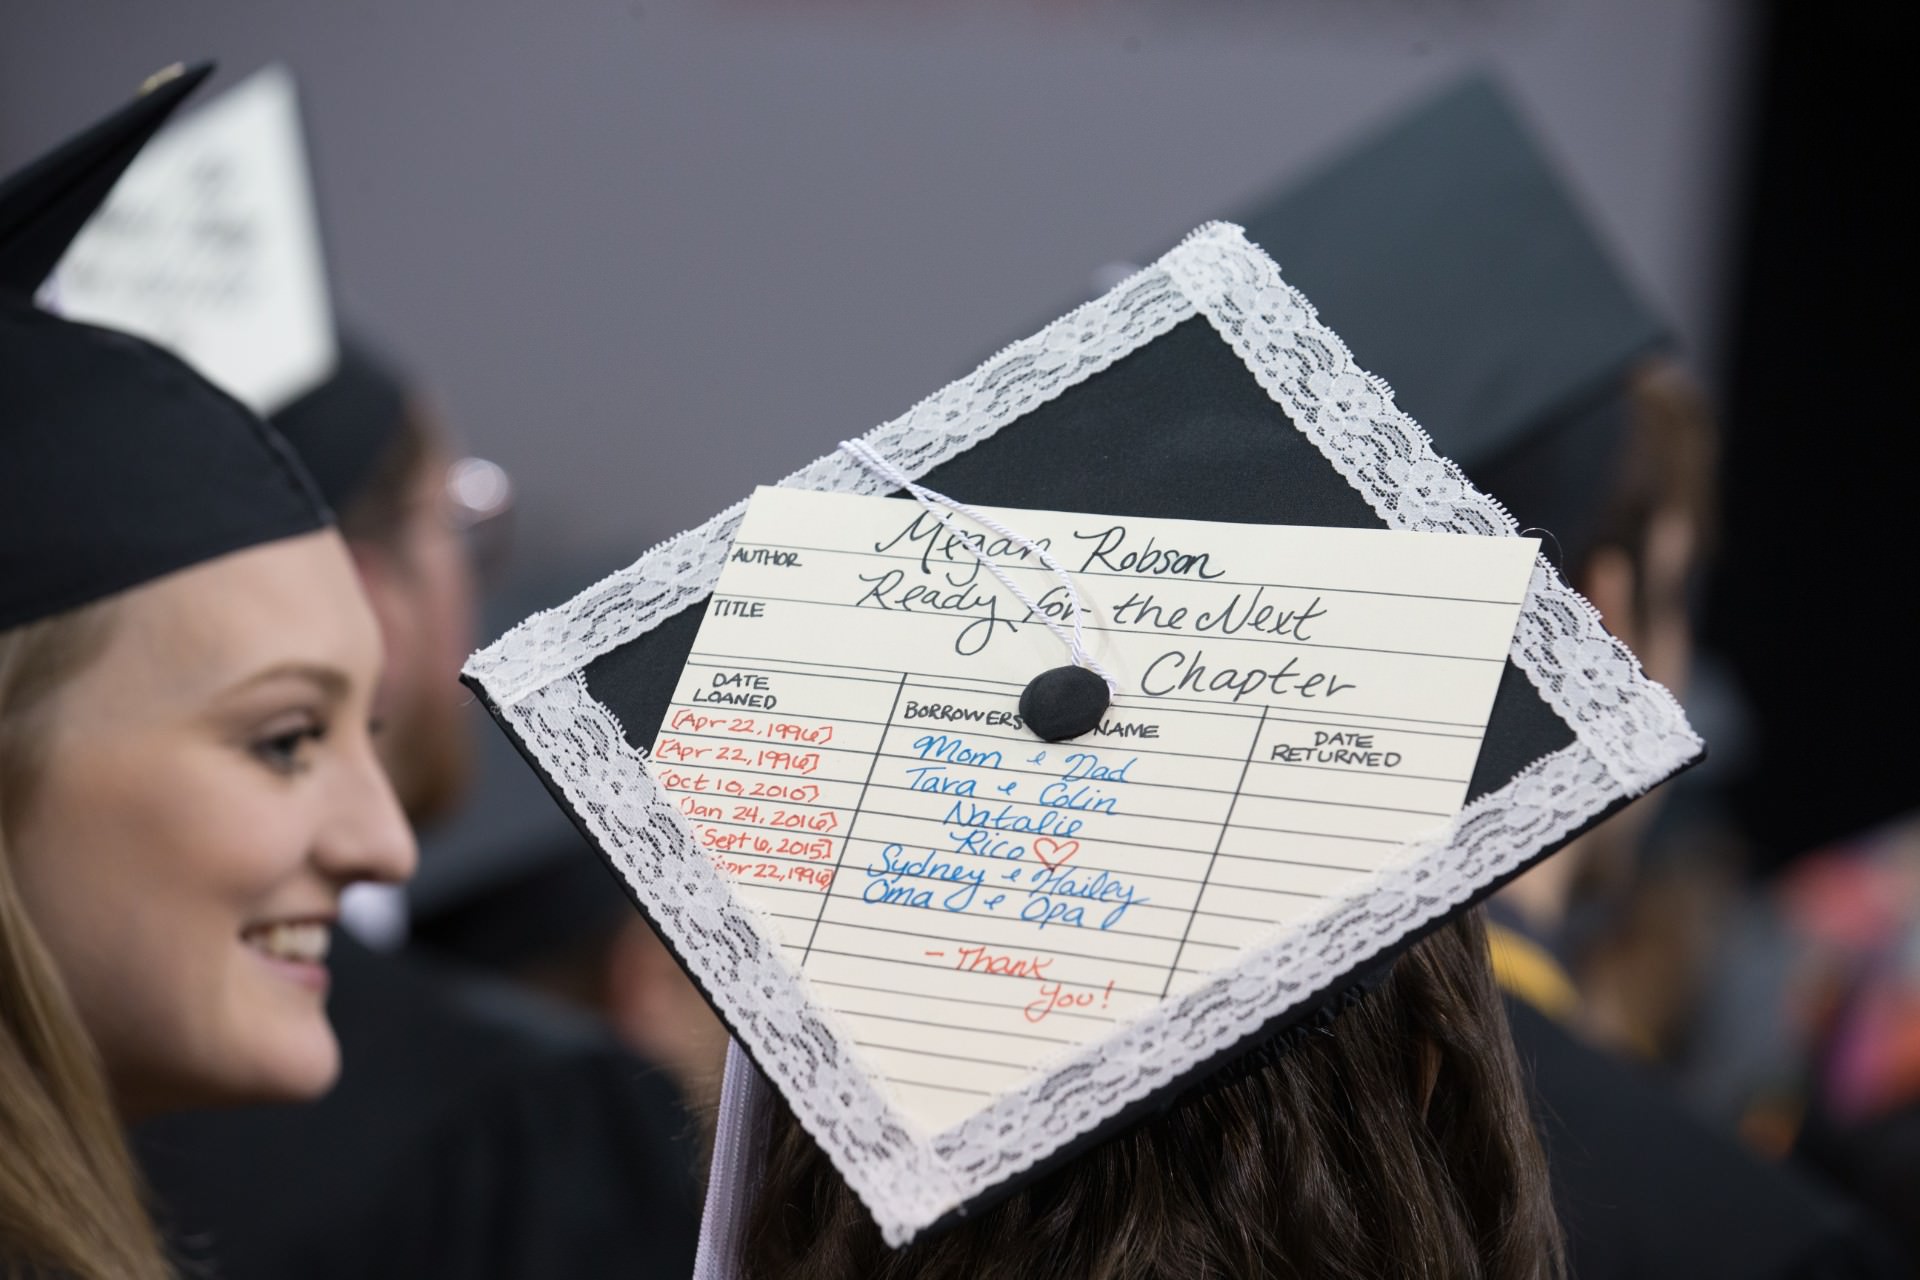 Megan Robson
AUTHOR
Ready for the Next
TITLE
Chapter
DATE LOANED
BORROWERS NAME
DATE RETURNED
[Apr 22, 1996] Mom & Dad
[Apr 22, 1996] Tara & Colin
[Oct 10, 2010] Natalie
[Jan 24, 2016] Rico ♡
[Sept 6, 2015] Sydney & Hailey
22, 1996] Oma & Opa
- Thank
You!